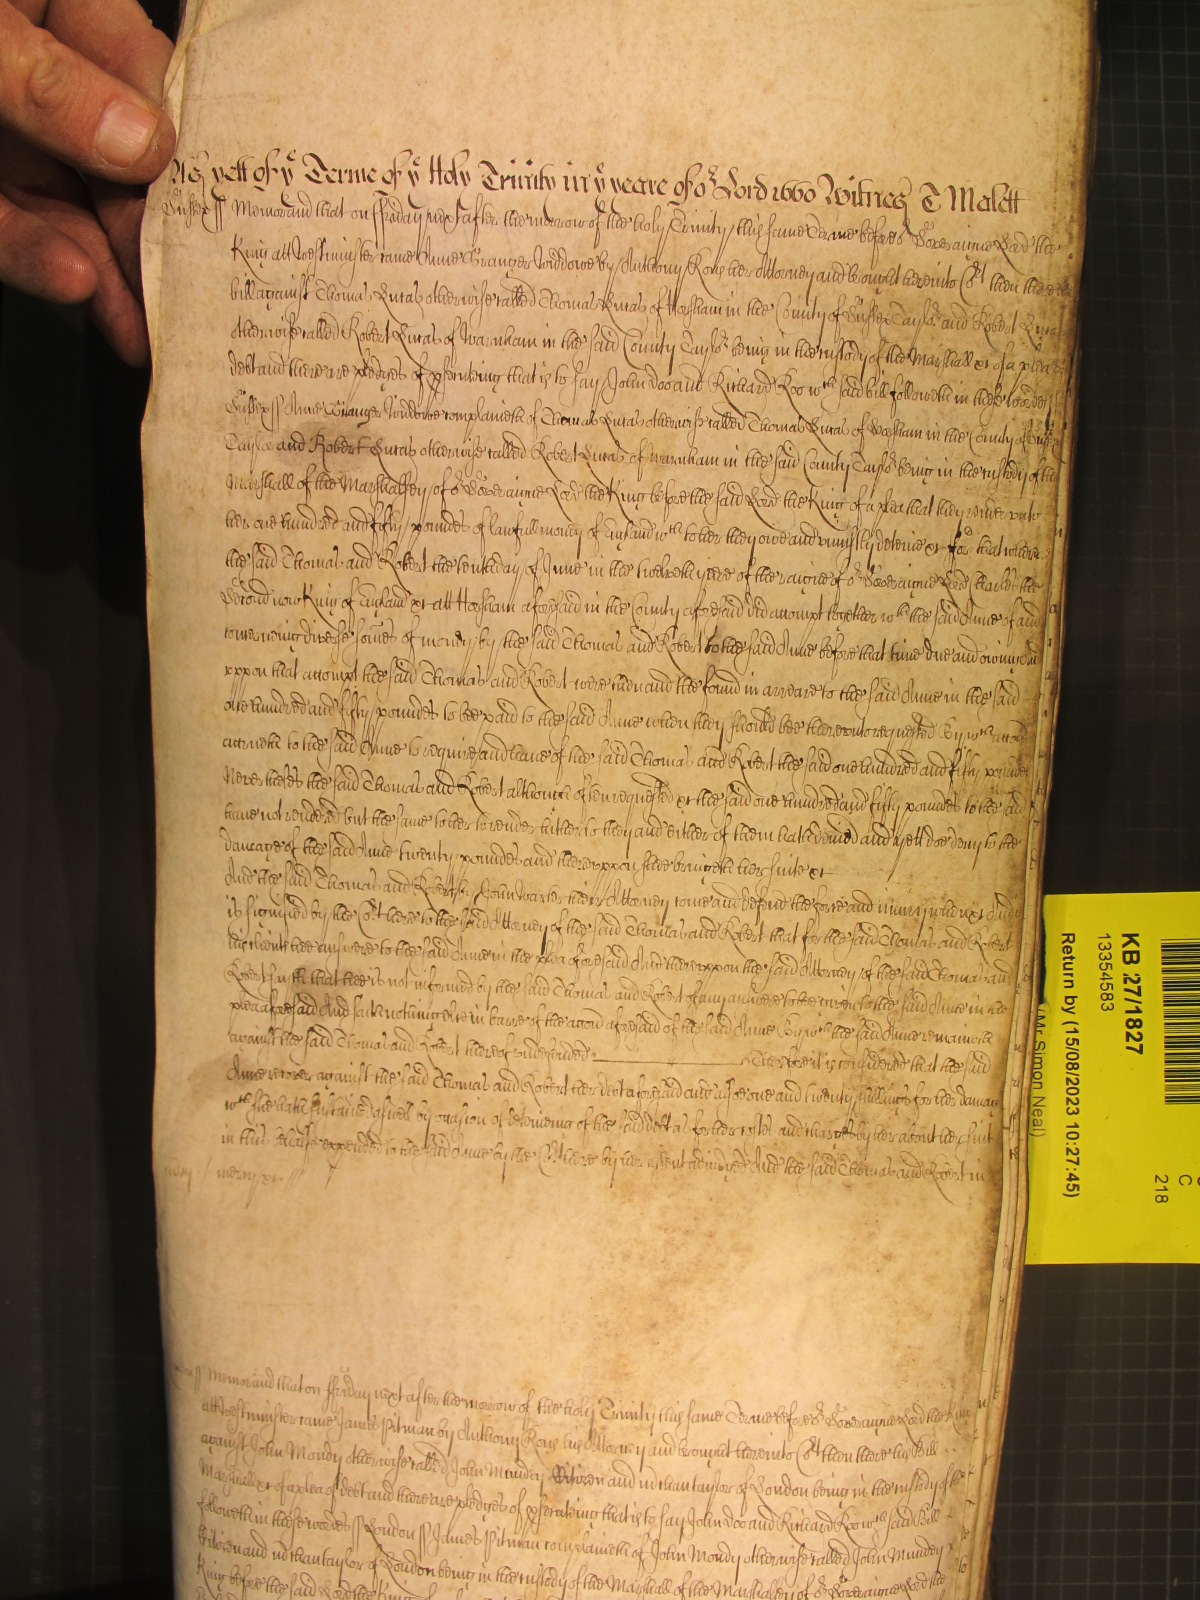 As yett of ye Terme of ye Holy Trinity in ye yeare of or Lord 1660 Witnes T Malett
Sussex ss Memorand that on ffriday next after the morrow of the holy Trinity this same Terme before or Soveraigne Lord the
King att Westminster came Anne Granger Widdowe by Anthony Rous her Attorney and brought here into Crt then there
bill against Thomas Lucas otherwise called Thomas Lucas of Horsham in the County of Sussex Taylor and Robert Lucas
otherwise called Robert Lucas of Warnham in the said County Taylor being in the custody of the Marshall &c of a plea
debt and there are pledges of psecuting that is to say John Doo and Richard Roo wch said bill followeth in these wordes
Sussex ss Anne Granger Widdowe complaineth of Thomas Lucas otherwise called Thomas Lucas of Horsham in the County of Sussex
Taylor and Robert Lucas otherwise called Robert Lucas of Warnham in the said County Taylor being in the custody of the
Marshall of the Marshallsey of or Soveraigne Lord the King before the said Lord the King of a plea that they render unto
her one hundred and fifty poundes of lawfull money of England wch to her they owe and uniustly deteine &c for that where
the said Thomas and Robert the tenth day of June in the twelveth yeare of the raigne of or Soveraigne Lord Charles the
Second now King of England &c att Horsham aforesaid in the County aforesaid did accompt together wth the said Anne of and
concerning diverse somes of money by the said Thomas and Robert to the said Anne before that time due and owing And
uppon that accompt the said Thomas and Robert were then and there found in arreare to the said Anne in the said
one hundred and fifty poundes to bee paid to the said Anne when they should bee thereunto requested By wch
accrueth to the said Anne to require and have of the said Thomas and Robert the said one hundred and fifty poundes
Neverthelesse the said Thomas and Robert although often requested &c the said one hundred and fifty poundes to the said
have not rendered but the same to her to render hitherto they and either of them hath denied and yett doe deny to the
damage of the said Anne twenty poundes and thereuppon shee bringeth her suite &c
And the said Thomas and Robert by John Waxter their Attorney come and defend the force and iniury when &c And
is signified by the Crt here to the said Attorney of the said Thomas and Robert that for the said Thomas and Robert
his clients hee answere to the said Anne in the plea aforesaid And thereuppon the said Attorney of the said Thomas and
Robert saith that hee is not informed by the said Thomas and Robert of any answere to bee given to the said Anne in the
plea aforesaid And saith nothing else in barre of the accon aforesaid of the said Anne By wch the said Anne remaineth
against the said Thomas and Robert thereof undefended Therefore it is considered that the said
Anne recover against the said Thomas and Robert her debt aforesaid and alsoe one and twenty shillings for her damages
wch shee hath sustained aswell by occasion of deteineing of the said debt as for her costes and charges by her about her suit
in this behalfe expended to the said Anne by the Crt here by her assent adiudged And the said Thomas and Robert in
mercy &c
Memorand that on ffriday next after the morrow of the holy Trinity this same Terme before or Soveraigne Lord the King
att Westminster came James Pitman by Anthony Rous his Attorney and brought here into Crt then there his Bill
against John Mondy otherwise called John Mundey Citizen and m'chantaylor of London being in the custody of the
Marshall &c of a plea of debt and there are pledges of psecuting that is to say John Doo and Richard Roo wch said Bill
followeth in these wordes ss London ss James Pitman complaineth of John Mondy otherwise called John Mundey
Citizen and m'chantaylor of London being in the custody of the Marshall of the Marshallsey of or Soveraigne Lord the
King before the said Lord the King
KB 27/1827
13354583
Return by (15/08/2023 10:27:45)
(Mr. Simon Neal)
C
218